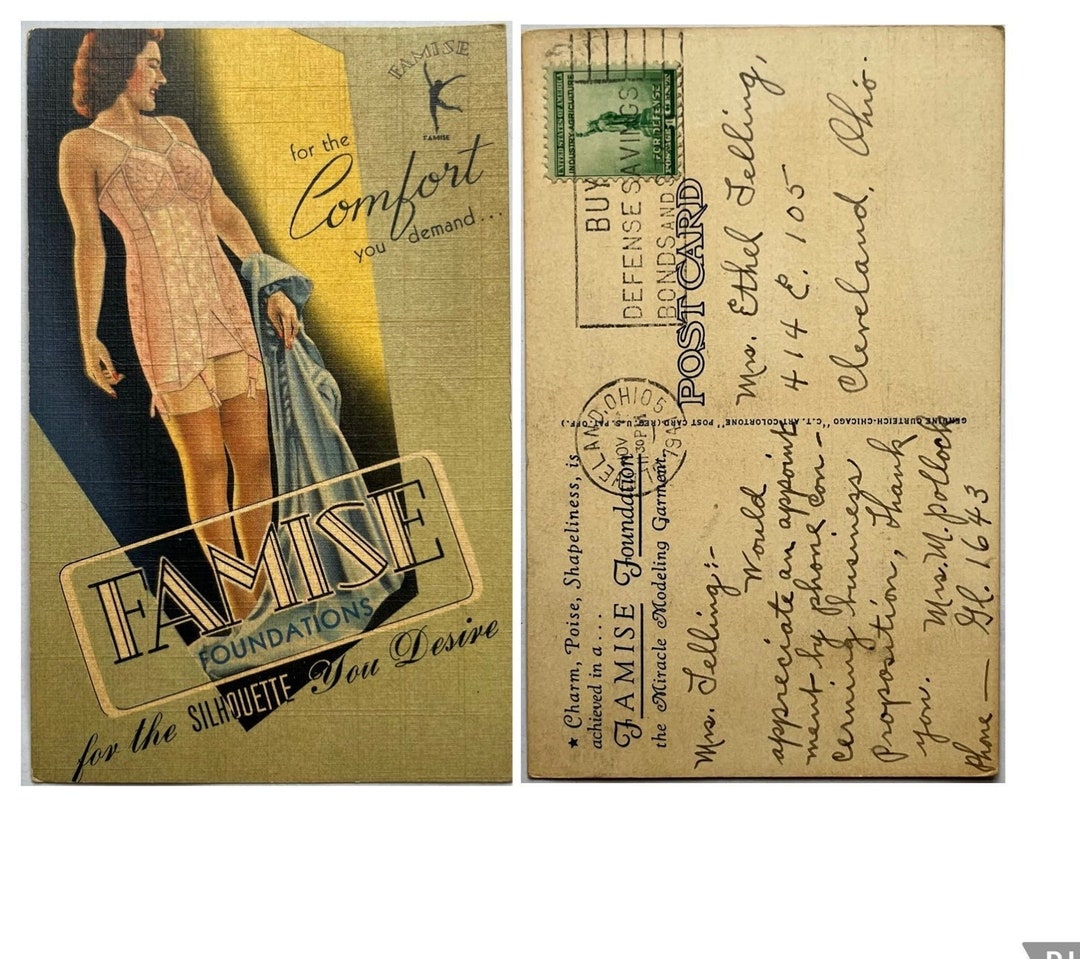 FAMISE
FAMISE
for the
Comfort
you demand...
FAMISE
FOUNDATIONS
for the SILHOUETTE You Desire
UNITED STATES OF AMERICA
INDUSTRY·AGRICULTURE
FOR DEFENSE
POSTAGE 1 CENT
BUY
DEFENSE SAVINGS
BONDS AND
POST CARD
ELAND, OHIO 5
NOV
1130 PM
194
Mrs. Ethel Telling,
414 E. 105
Cleveland, Ohio.
GENUINE CURTEICH-CHICAGO "C.T. ART-COLORTONE" POST CARD (REG. U.S. PAT. OFF.)
★ Charm, Poise, Shapeliness, is
achieved in a....
FAMISE Foundation
the Miracle Modeling Garment.
Mrs. Telling:-
Would
appreciate an appoint
ment by phone con-
cerning business
Proposition, Thank
you.
Mrs. M. Pollock
Phone — Gl. 1643